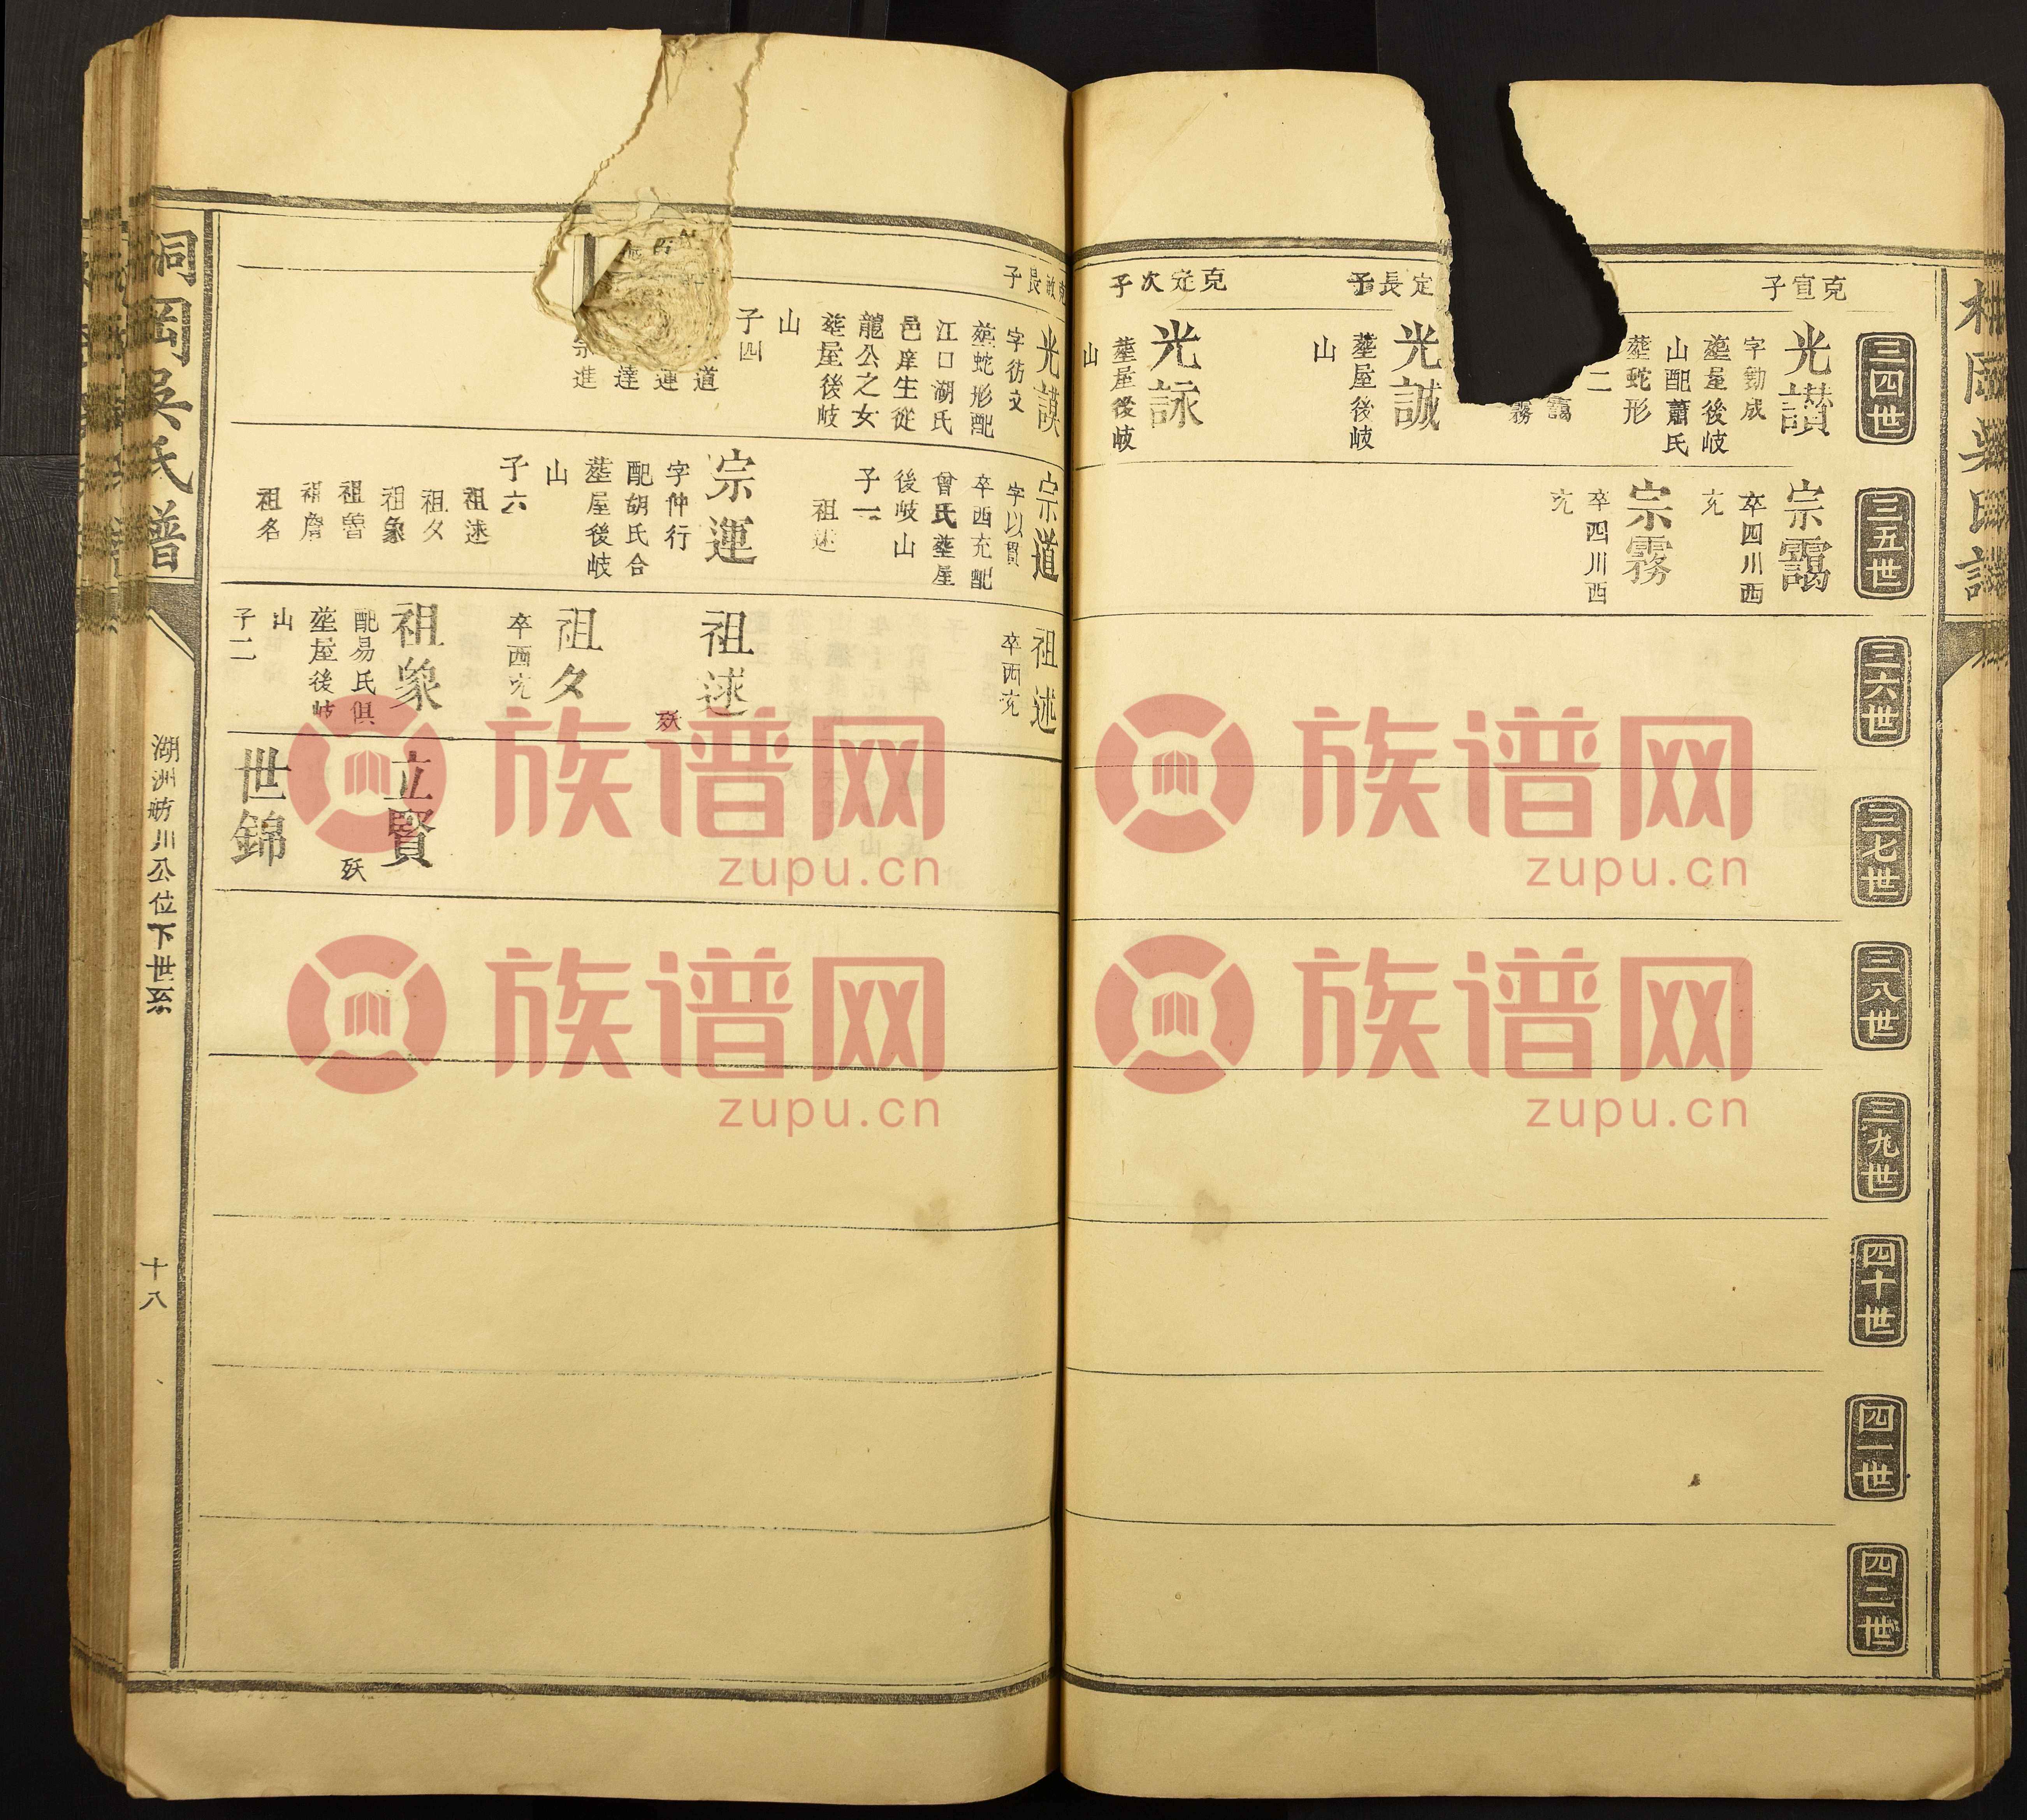 三四世
三五世
三六世
三七世
三八世
三九世
四十世
四一世
四二世
克宣子
光讃
字勷成
塟屋後岐
山配蕭氏
塟蛇形
二
靄
霧
定長子
光誠
塟屋後岐
山
克定次子
光詠
塟屋後岐
山
宗靄
卒四川西
宗霧
卒四川西
克敀長子
光謨
字彷文
塟蛇形配
江口湖氏
邑庠生從
龍公之女
塟屋後岐
山
子四
道
運
達
宗進
宗道
字以貫
卒西充配
曾氏塟屋
後岐山
子一
祖述
宗運
字仲行
配胡氏合
塟屋後岐
山
子六
祖述
祖夂
祖象
祖魯
祖裔
祖名
祖述
卒西充
祖述
殀
祖夂
卒西充
祖象
配易氏俱
塟屋後岐
山
子二
立賢
殀
世錦
桐岡吳氏譜
湖洲舫川公位下世系
十八
族谱网
zupu.cn
族谱网
zupu.cn
族谱网
zupu.cn
族谱网
zupu.cn